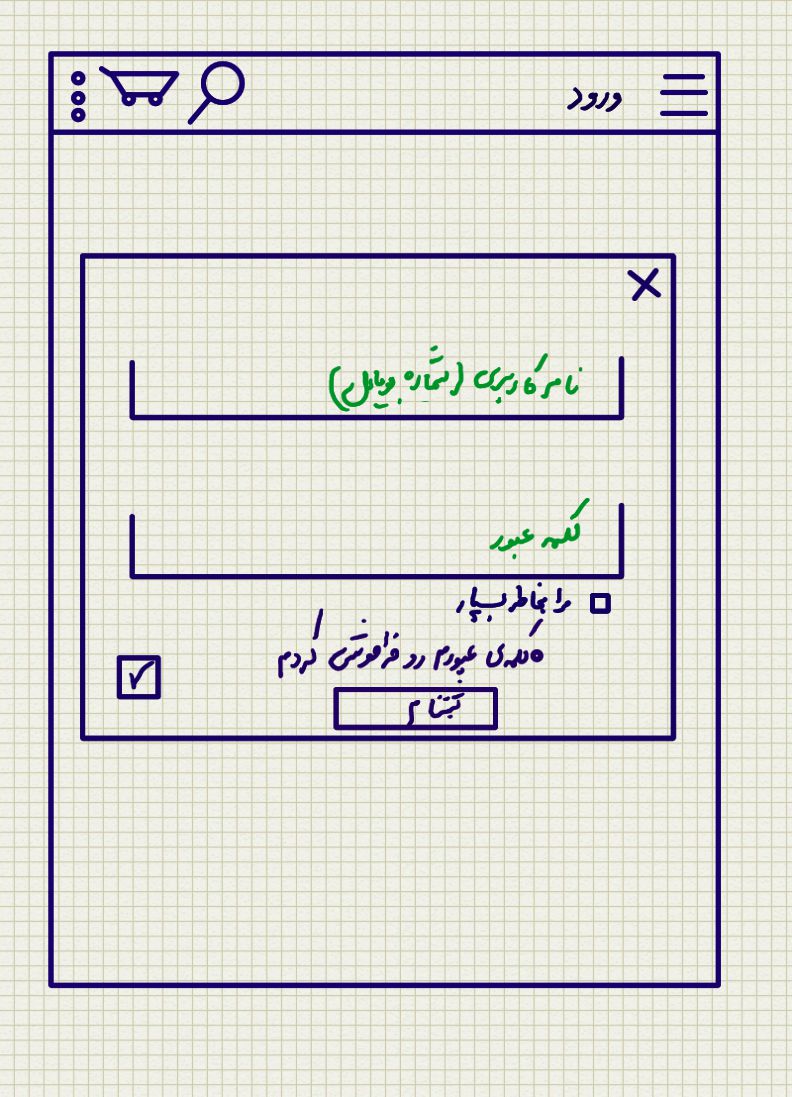 ورود
نام کاربری (شماره موبایل)
کلمه عبور
مرا بخاطر بسپار
کلمه‌ی عبورم رو فراموش کردم
ثبتنام